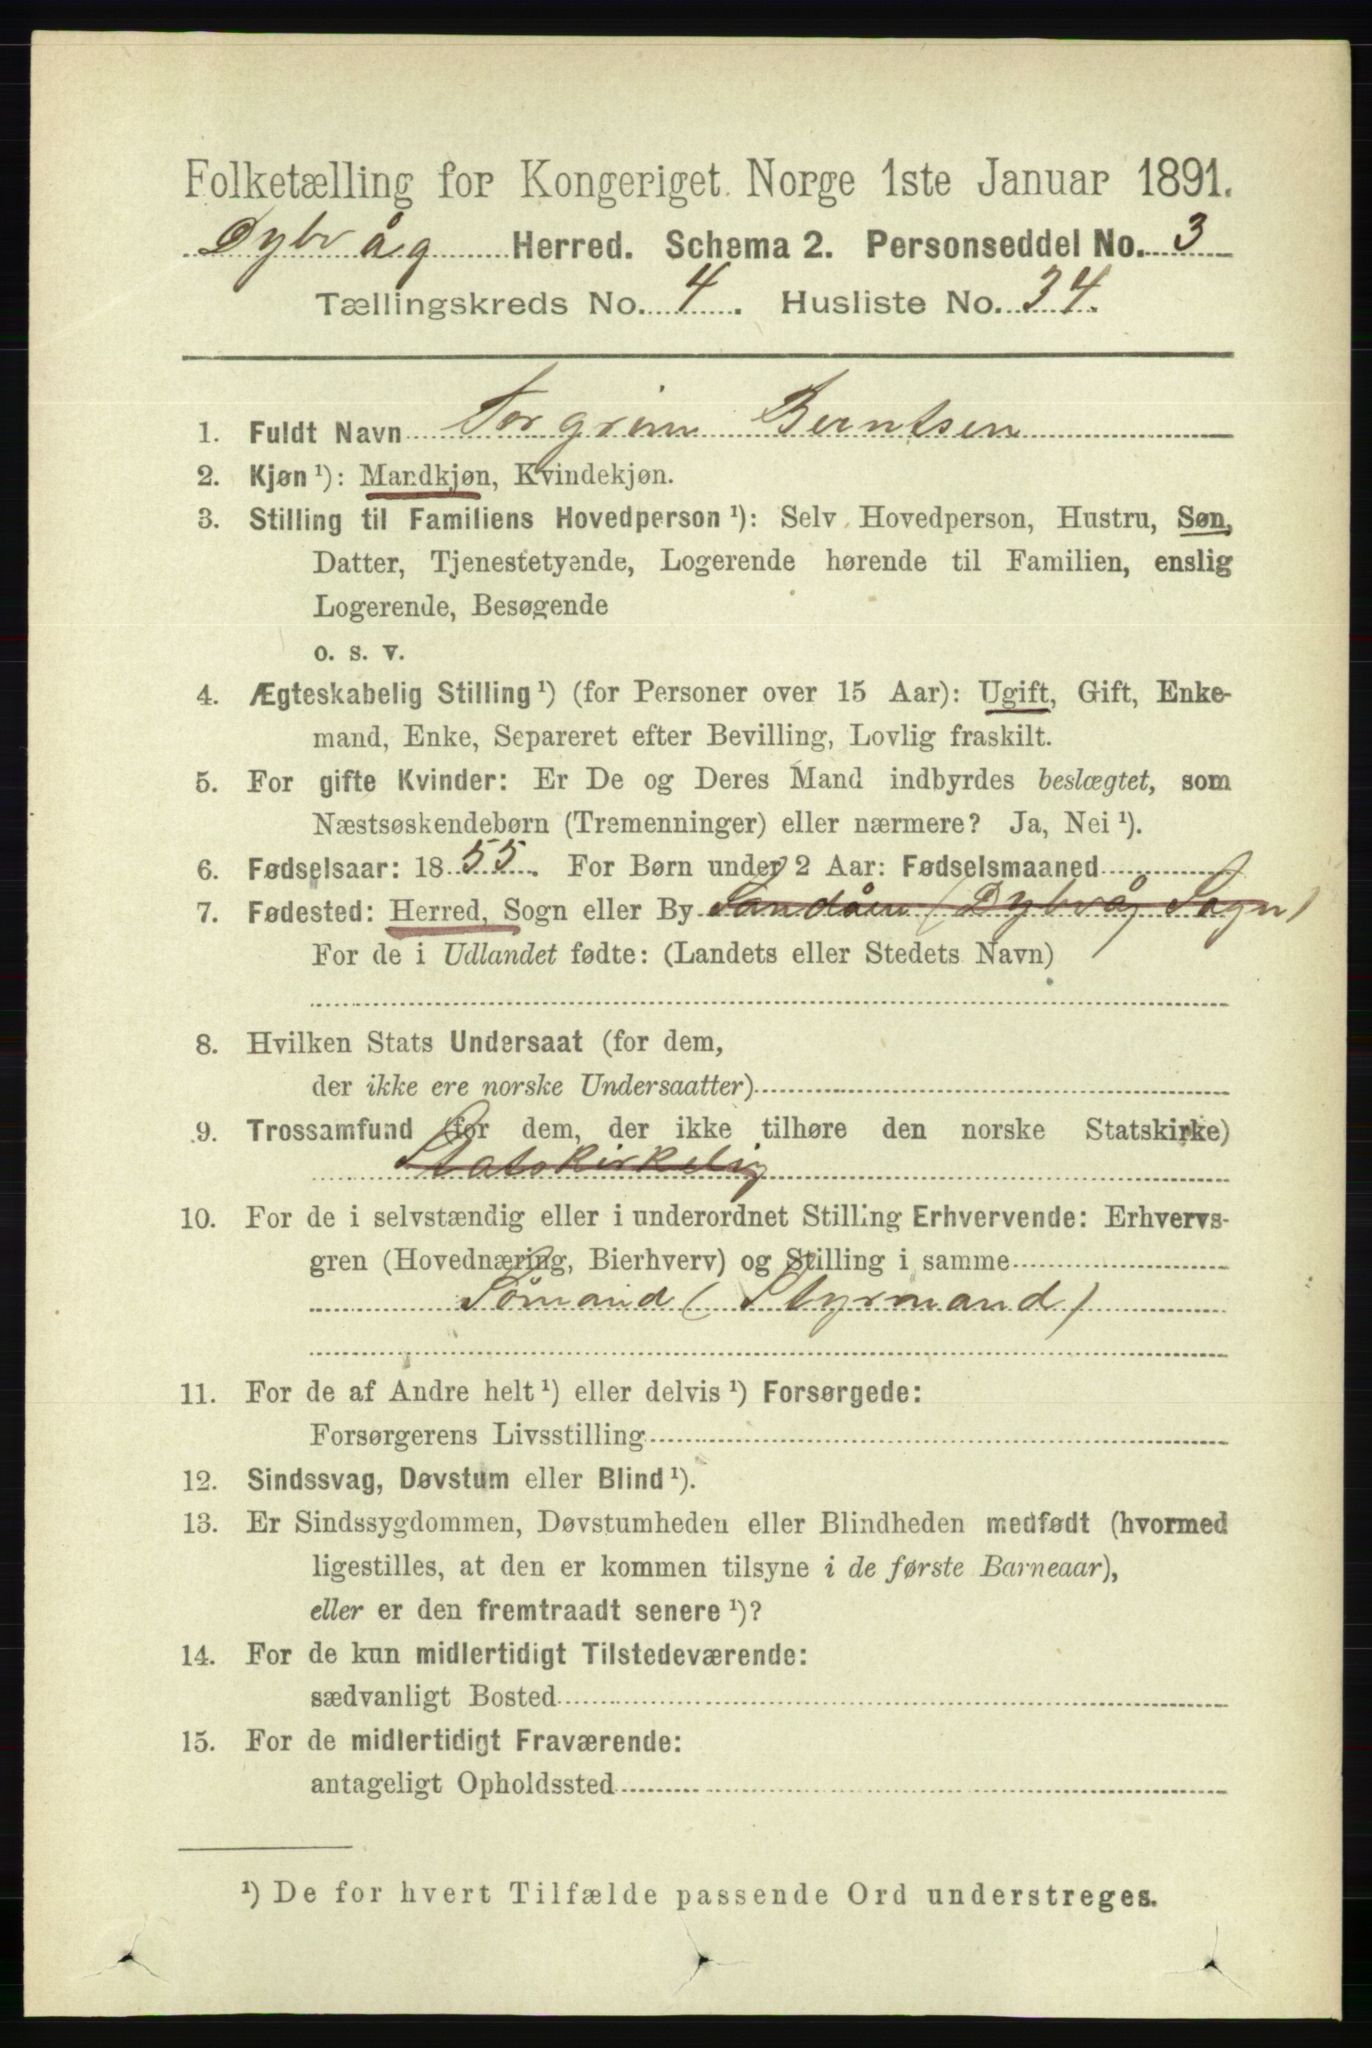 Folketælling for Kongeriget Norge 1ste Januar 1891.
Dybvåg Herred. Schema 2. Personseddel No. 3
Tællingskreds No. 4. Husliste No. 34.
1. Fuldt Navn Torgrim Berntsen
2. Kjøn ¹): Mandkjøn, Kvindekjøn.
3. Stilling til Familiens Hovedperson ¹): Selv Hovedperson, Hustru, Søn,
Datter, Tjenestetyende, Logerende hørende til Familien, enslig
Logerende, Besøgende
o. s. v.
4. Ægteskabelig Stilling ¹) (for Personer over 15 Aar): Ugift, Gift, Enke-
mand, Enke, Separeret efter Bevilling, Lovlig fraskilt.
5. For gifte Kvinder: Er De og Deres Mand indbyrdes beslægtet, som
Næstsøskendebørn (Tremenninger) eller nærmere? Ja, Nei ¹).
6. Fødselsaar: 1855. For Børn under 2 Aar: Fødselsmaaned
7. Fødested: Herred, Sogn eller By Sandåen (Dybvåg Sogn)
For de i Udlandet fødte: (Landets eller Stedets Navn)
8. Hvilken Stats Undersaat (for dem,
der ikke ere norske Undersaatter)
9. Trossamfund (for dem, der ikke tilhøre den norske Statskirke)
Statskirkelig
10. For de i selvstændig eller i underordnet Stilling Erhvervende: Erhvervs-
gren (Hovednæring, Bierhverv) og Stilling i samme
Sømand (Styrmand)
11. For de af Andre helt ¹) eller delvis ¹) Forsørgede:
Forsørgerens Livsstilling
12. Sindssvag, Døvstum eller Blind ¹).
13. Er Sindssygdommen, Døvstumheden eller Blindheden medfødt (hvormed
ligestilles, at den er kommen tilsyne i de første Barneaar),
eller er den fremtraadt senere ¹)?
14. For de kun midlertidigt Tilstedeværende:
sædvanligt Bosted
15. For de midlertidigt Fraværende:
antageligt Opholdssted
¹) De for hvert Tilfælde passende Ord understreges.